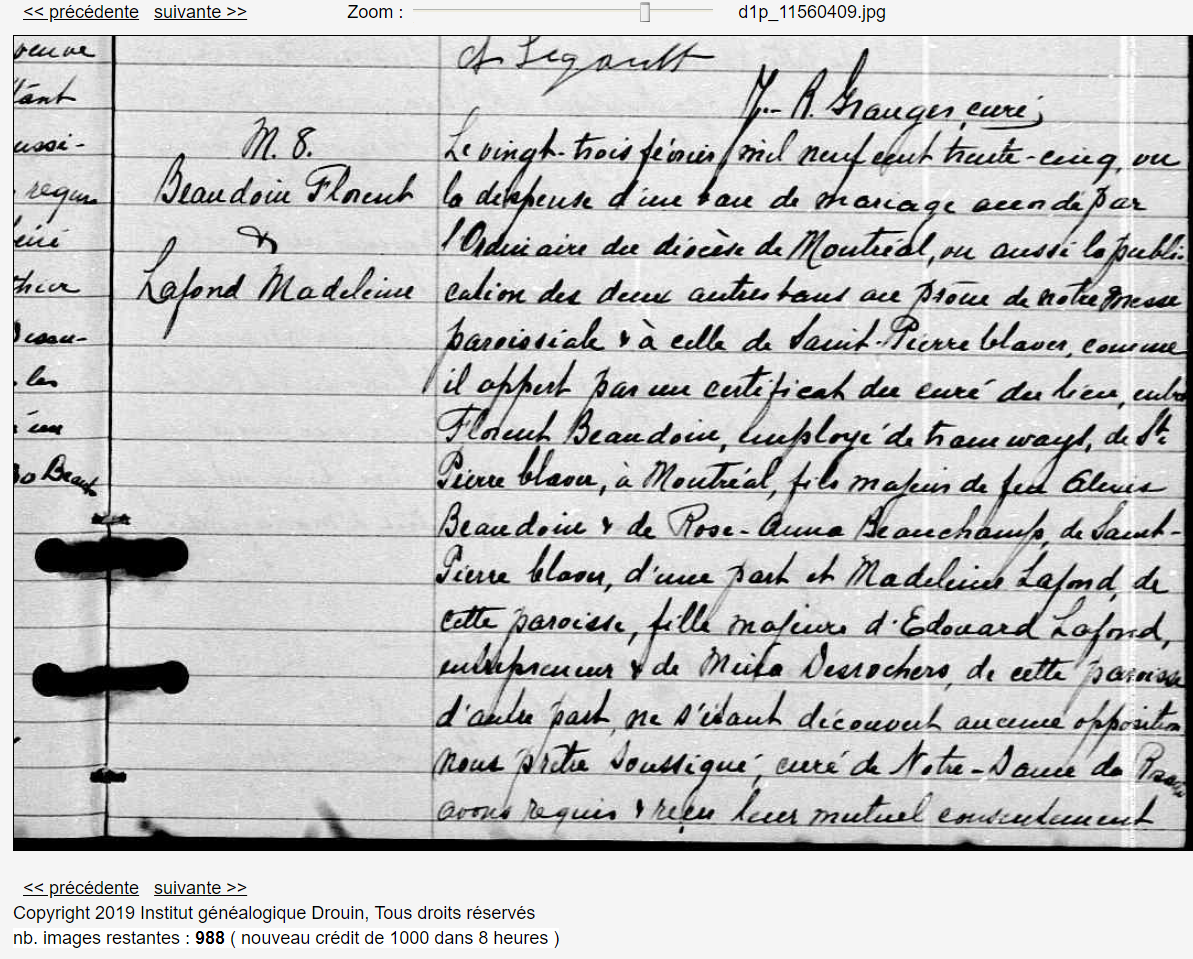 << précédente suivante >> Zoom : d1p_11560409.jpg
A Legault
J.-R. Granger, curé,
M. 8.
Beaudoin Florent
&
Lafond Madeleine
Le vingt-trois février mil neuf cent trente-cinq, vu
la dispense d'un ban de mariage accordé par
l'Ordinaire du diocèse de Montréal, vu aussi la publi-
cation des deux autres bans au prône de notre messe
paroissiale & à celle de Saint-Pierre Claver, comme
il appert par un certificat du curé du lieu, entre
Florent Beaudoin, employé de tramways, de St.
Pierre Claver, à Montréal, fils majeur de feu Alexis
Beaudoin & de Rose-Anna Beauchamp, de Saint-
Pierre Claver, d'une part et Madeleine Lafond, de
cette paroisse, fille majeure d'Edouard Lafond,
entrepreneur & de Desrochers, de cette paroisse
d'autre part, ne s'étant découvert aucune opposition
nous prêtre soussigné, curé de Notre-Dame du
avons requis & reçu leur mutuel consentement
<< précédente suivante >>
Copyright 2019 Institut généalogique Drouin, Tous droits réservés
nb. images restantes : 988 ( nouveau crédit de 1000 dans 8 heures )